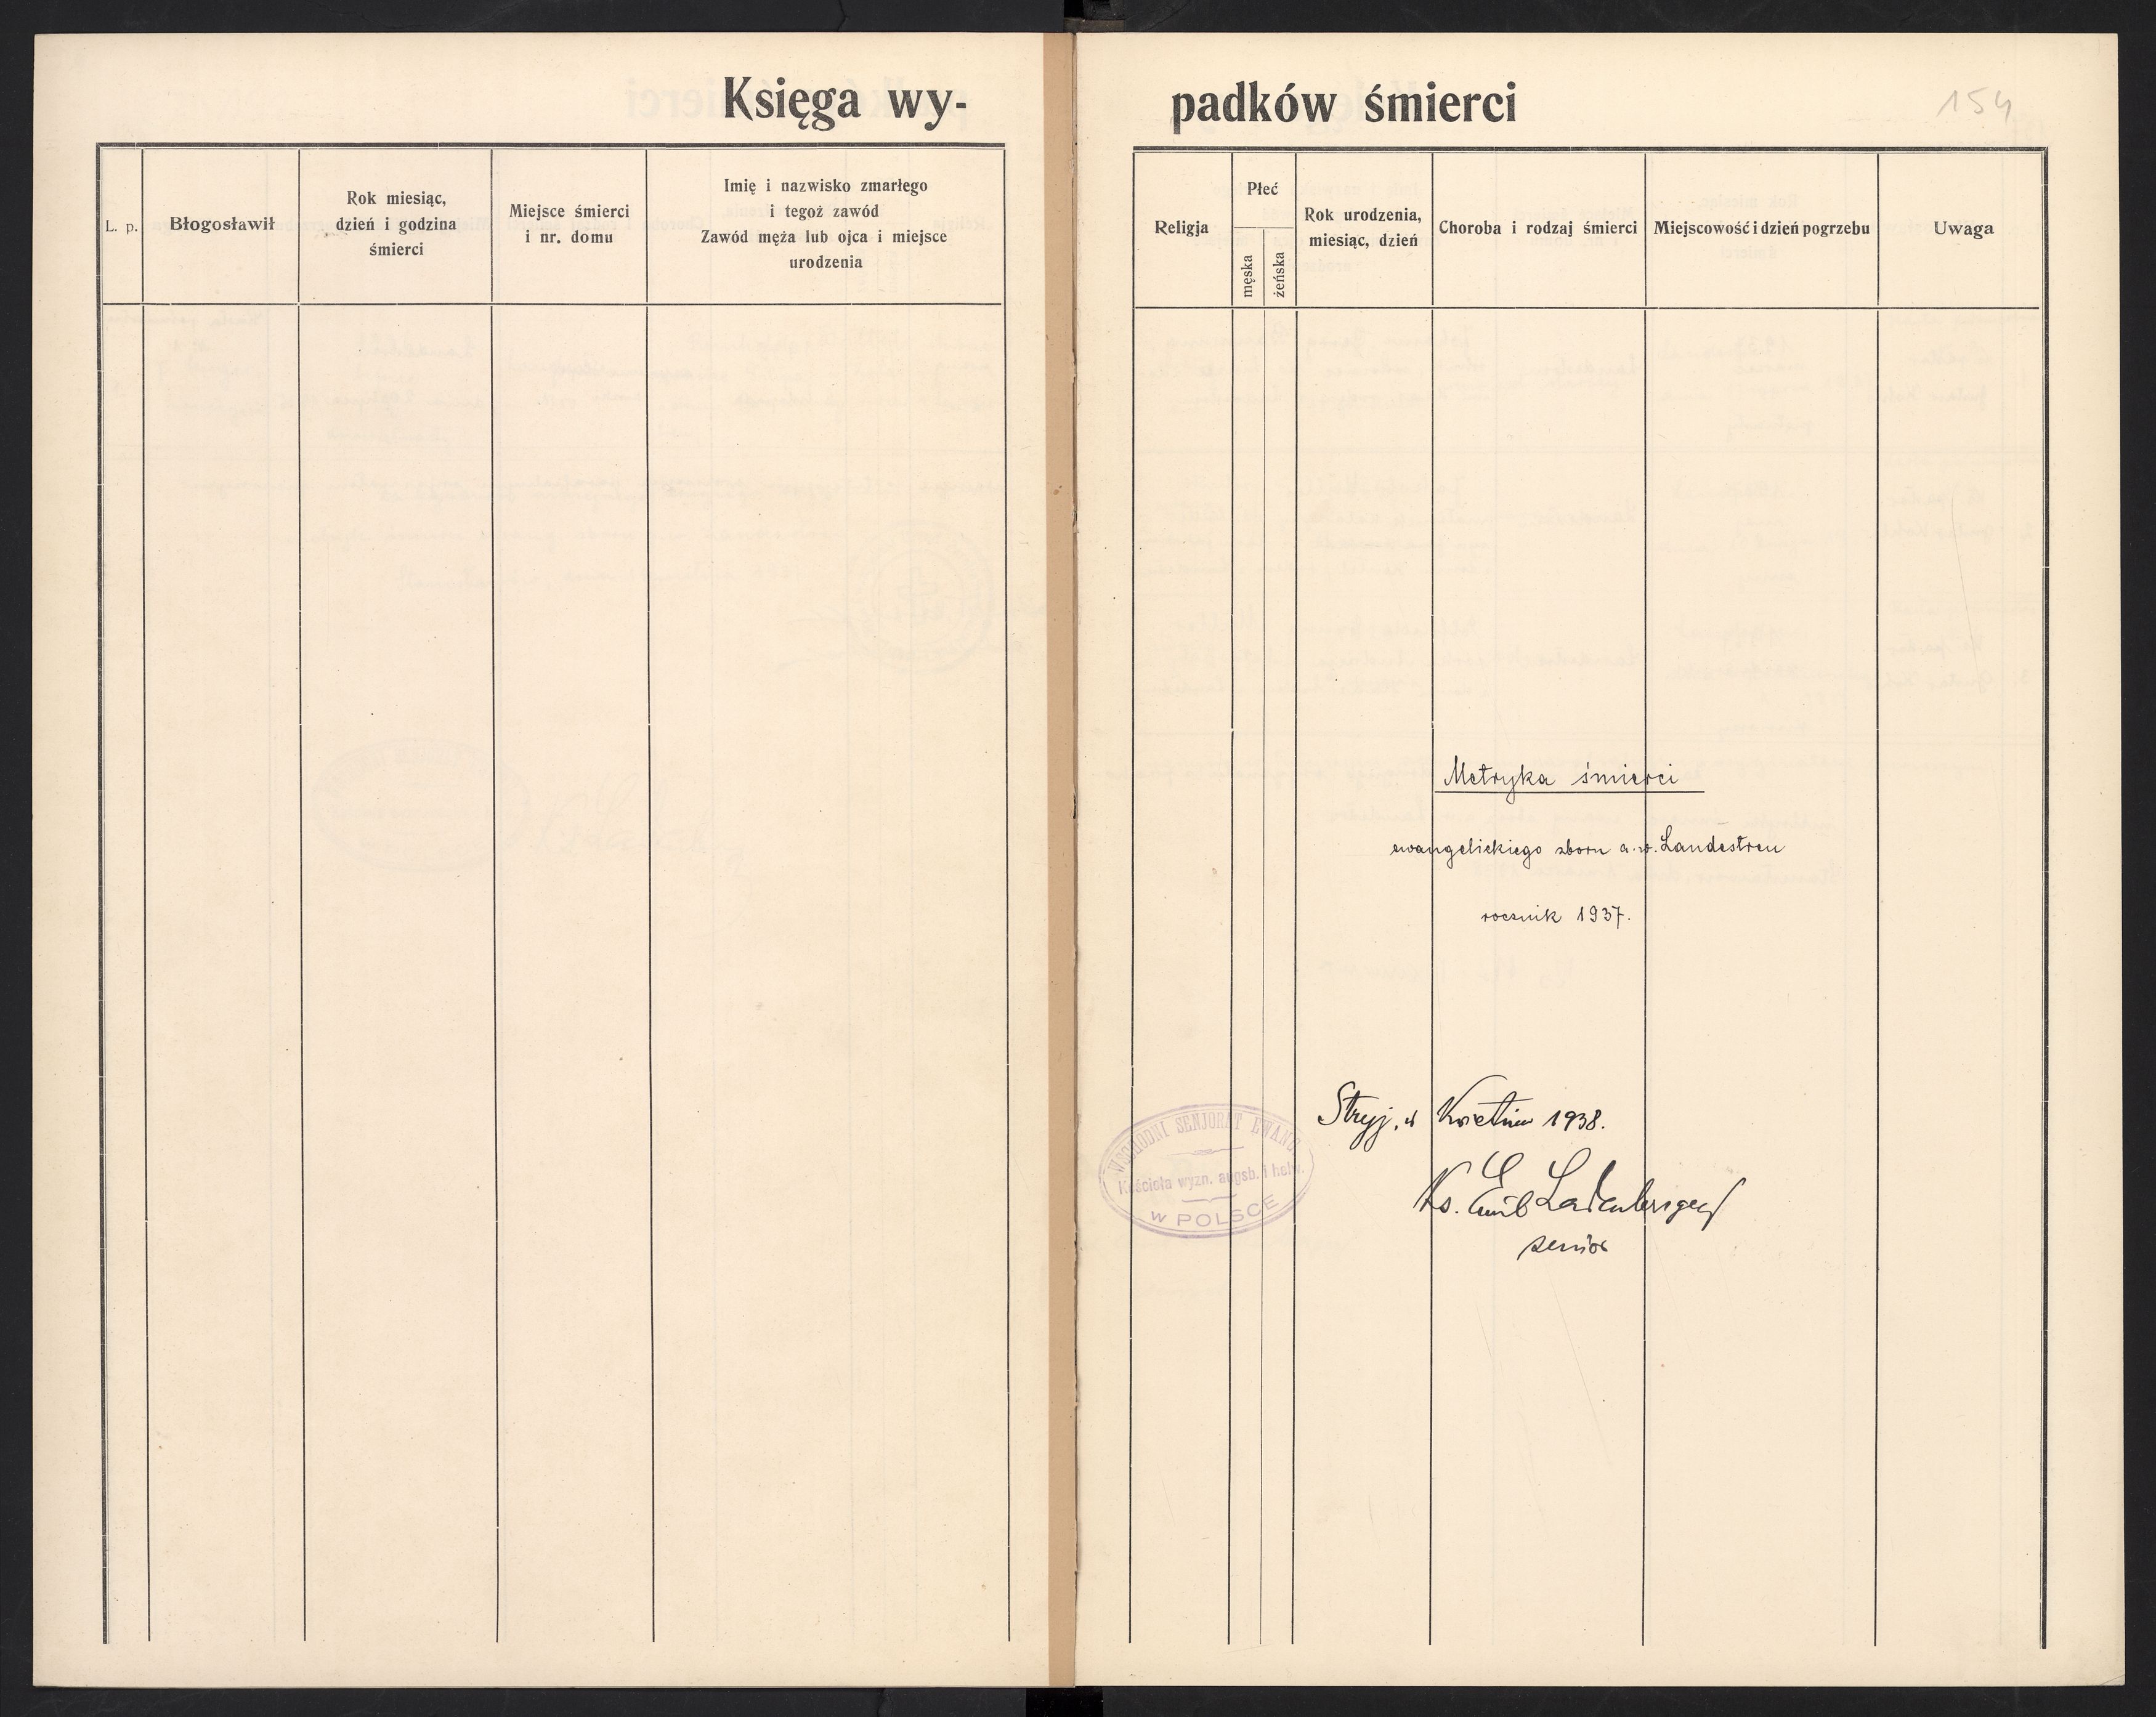 Księga wy-
L. p.
Błogosławił
Rok miesiąc,
dzień i godzina
śmierci
Miejsce śmierci
i nr. domu
Imię i nazwisko zmarłego
i tegoż zawód
Zawód męża lub ojca i miejsce
urodzenia
padków śmierci
154
Religja
Płeć
męska
żeńska
Rok urodzenia,
miesiąc, dzień
Choroba i rodzaj śmierci
Miejscowość i dzień pogrzebu
Uwaga
Metryka śmierci
ewangelickiego zboru a. w. Landestreu
rocznik 1937.
Stryj, w Kwietniu 1938.
Ks. Emil Ladenberger
senior
WSCHODNI SENJORAT EWANG.
Kościoła wyzn. augsb. i helw.
w POLSCE